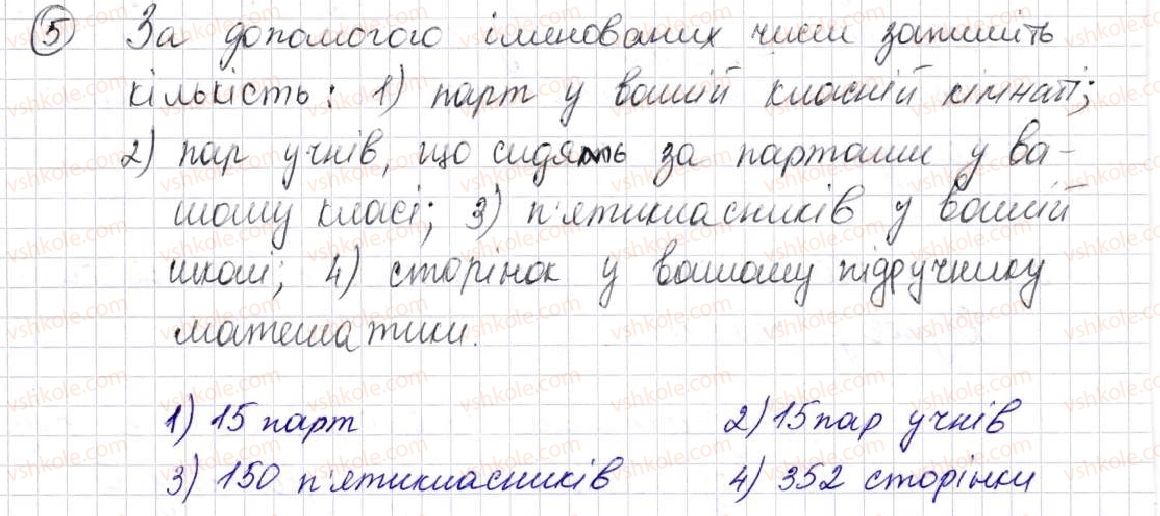 5 За допомогою іменованих чисел запишіть
кількість: 1) парт у вашій класній кімнаті;
2) пар учнів, що сидять за партами у ва-
шому класі; 3) п'ятикласників у вашій
школі; 4) сторінок у вашому підручнику
математики.
1) 15 парт 2) 15 пар учнів
3) 150 п'ятикласників 4) 352 сторінки